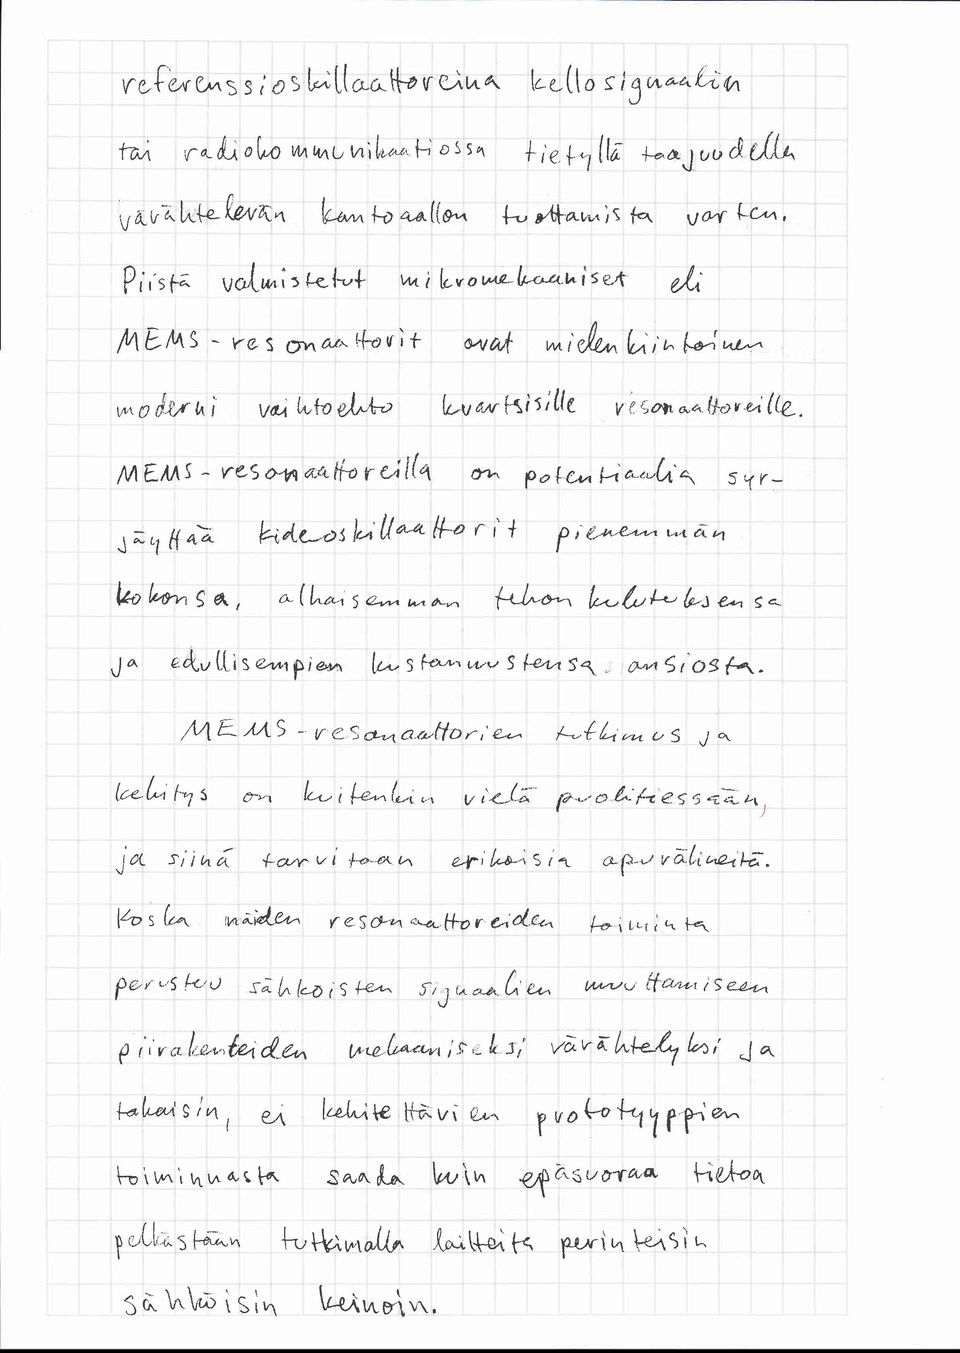 referenssioskillaattoreina kellosignaalin
tai radiokommunikaatiossa tietyllä taajuudella
värähtelevän kantoaallon tuottamista varten.
Piistä valmistetut mikromekaaniset eli
MEMS-resonaattorit ovat mielenkiintoinen
moderni vaihtoehto kvartsisille resonaattoreille.
MEMS-resonaattoreilla on potentiaalia syr-
jäyttää kideoskillaattorit pienemmän
kokonsa, alhaisemman tehon kulutuksensa
ja edullisempien kustannustensa ansiosta.
MEMS-resonaattorien tutkimus ja
kehitys on kuitenkin vielä puolitiessään,
ja siinä tarvitaan erikoisia apuvälineitä.
Koska näiden resonaattoreiden toiminta
perustuu sähköisten signaalien muuttamiseen
piirakenteiden mekaaniseksi värähtelyksi ja
takaisin, ei kehitettävien prototyyppien
toiminnasta saada kuin epäsuoraa tietoa
pelkästään tutkimalla laitteita perinteisin
sähköisin keinoin.